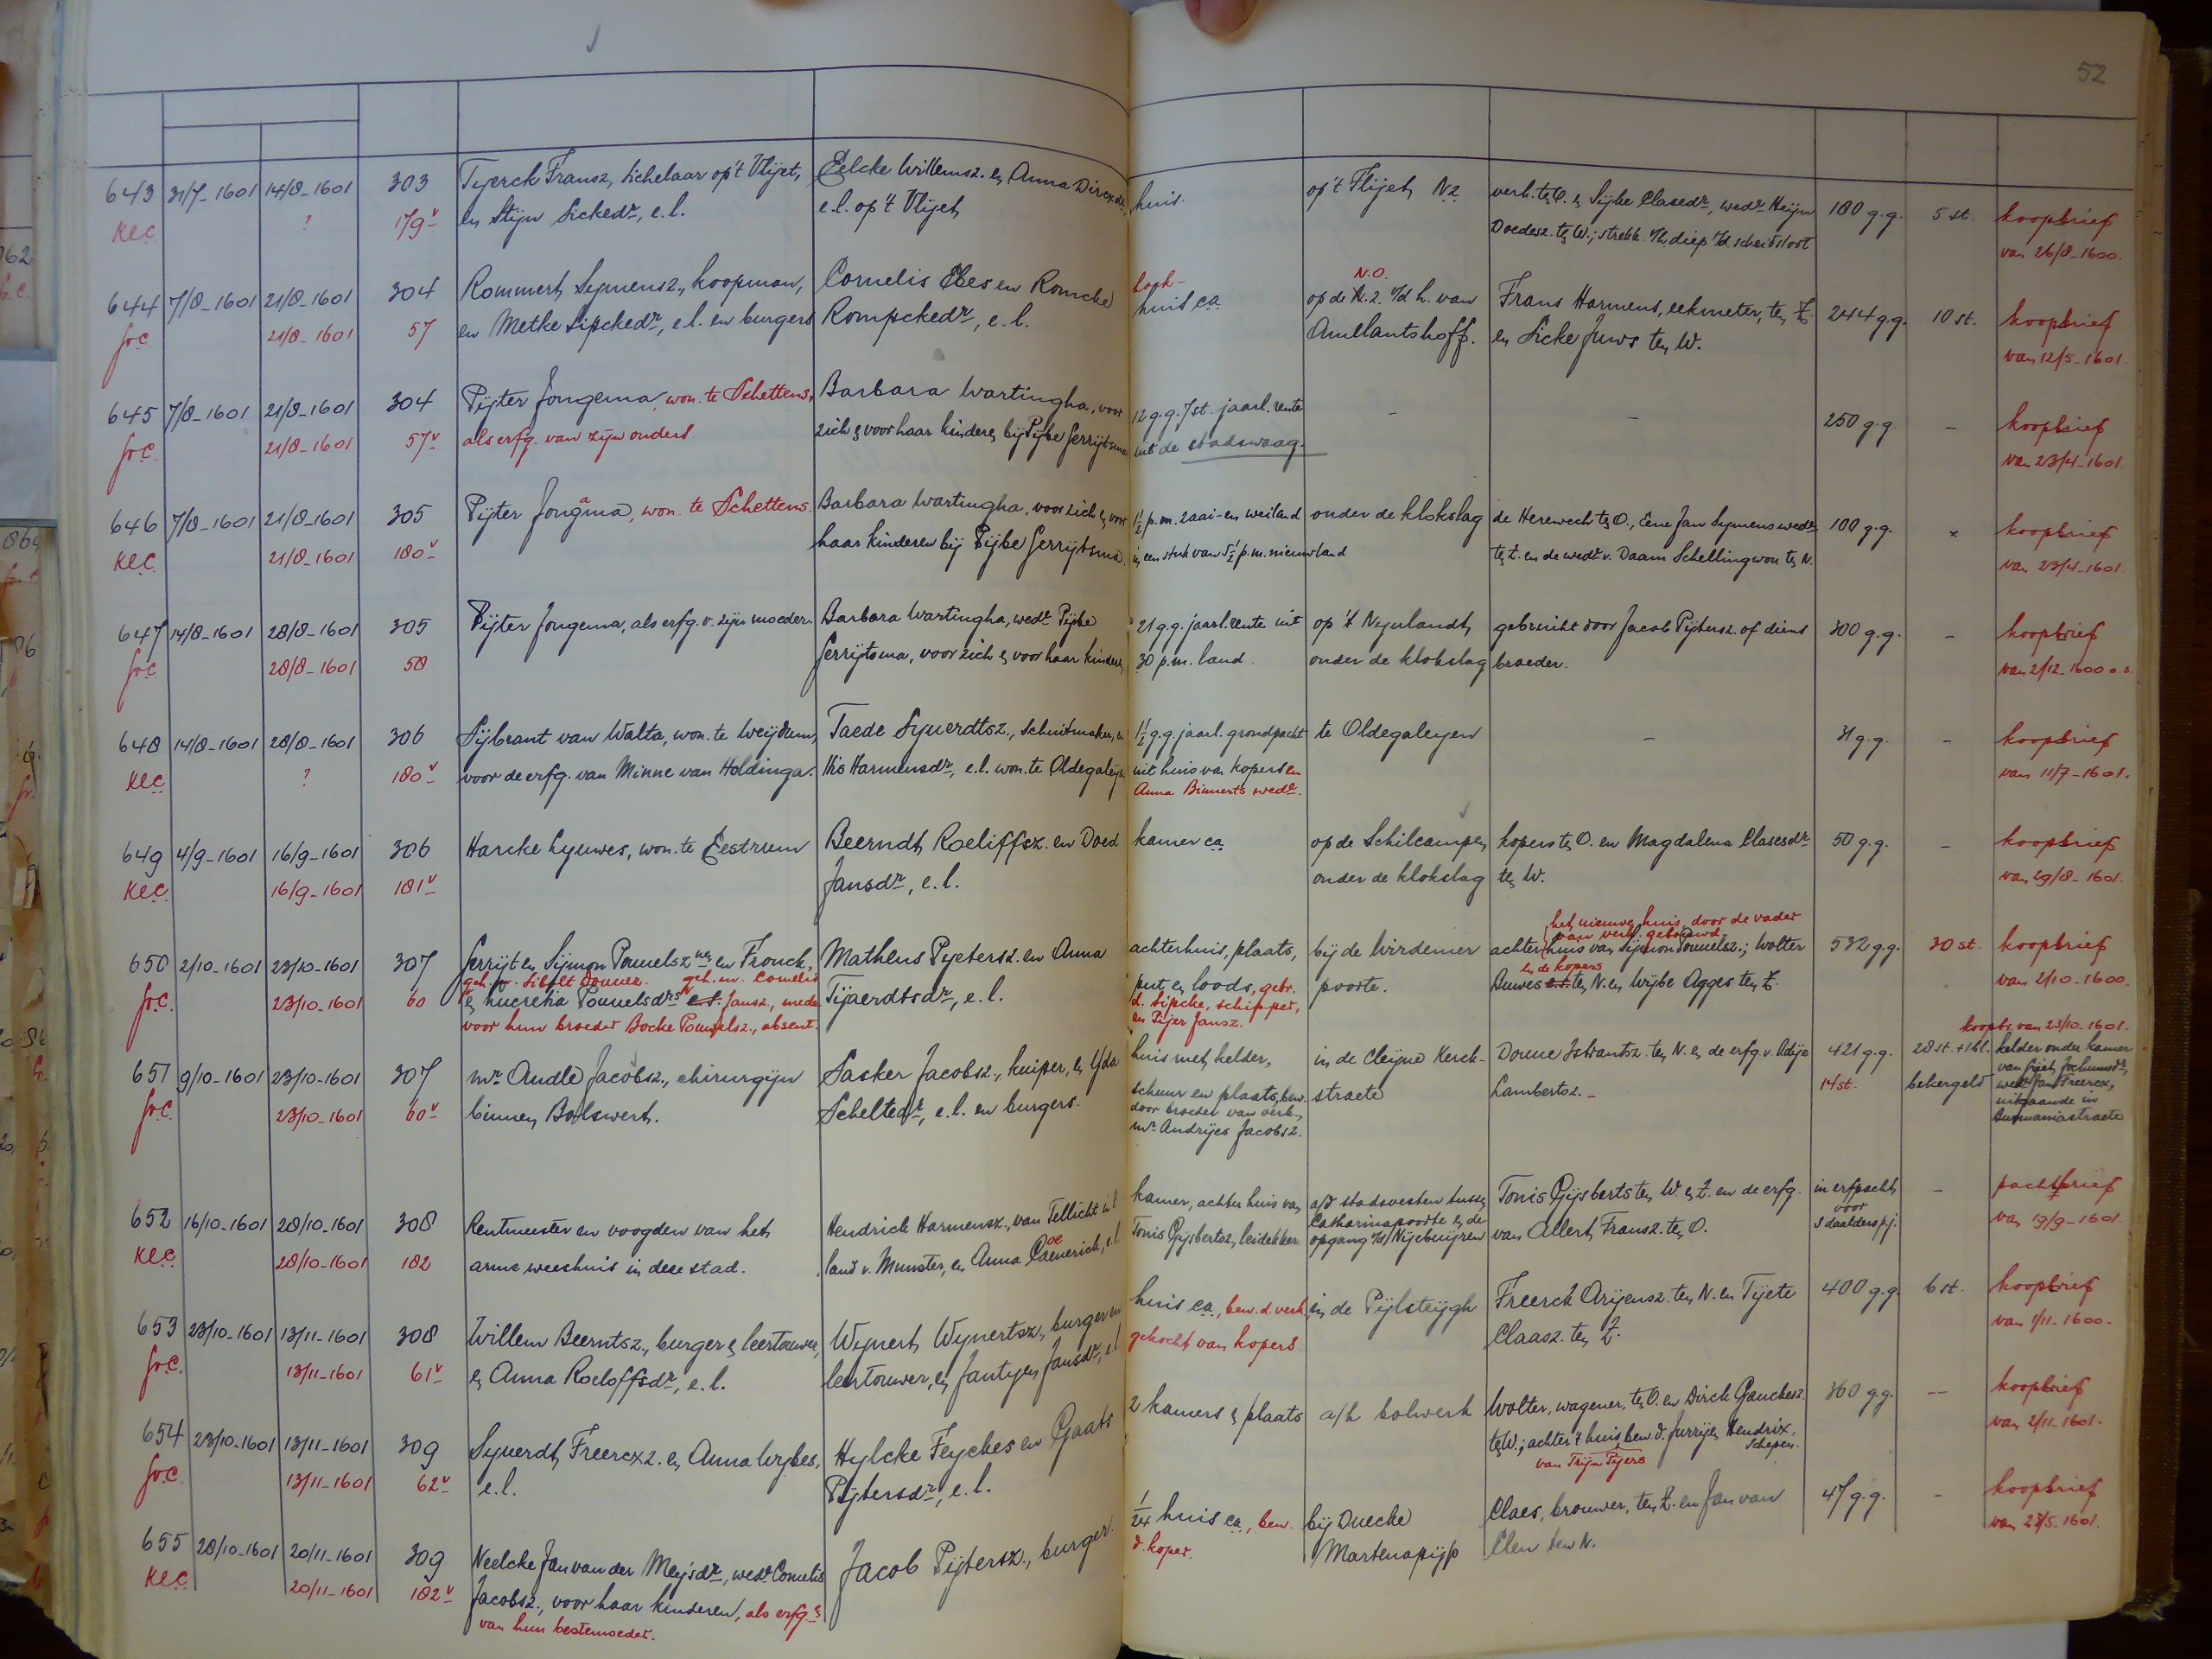 52
643 31/7-1601 14/8-1601 303 Tyerck Fransz, tichelaar op 't Vlijet, Eelcke Willemsz. en Anna Dircxdr, huis. op 't Flijet N.Z. verk. ten O. en Sijbe Clasedr, wedr Heijn 180 g.g. 5 st. koopbrief
KeC ? 179v en Stijn Sickedr, e.l. e.l. op 't Vlijet Doedesz. ten W.; strekk. v/h diep t/d scheidsloot van 26/8-1600.
644 7/8-1601 21/8-1601 304 Rommert Symensz, koopman, Cornelis Ebes en Romcke hoek- N.O. op de N.Z. v/d h. van Frans Harmens, eekmeter, ten Z. 244 g.g. 10 st. koopbrief
GrC. 21/8-1601 57 en Metke Sipckedr, e.l. en burgers Rompckedr, e.l. huis ca. Amelantshoff. en Sicke Juws ten W. van 12/5-1601.
645 7/8-1601 21/8-1601 304 Pijter Jongema, won. te Schettens, Barbara Wartingha, voor 12 g.g. 7 st. jaarl. rente - - 250 g.g. - koopbrief
GrC. 21/8-1601 57v als erfg. van zijn ouders. zich en voor haar kinderen bij Pijbe Gerrijtsma uit de stadswaag. van 23/4-1601.
646 7/8-1601 21/8-1601 305 Pijter Jongama, won. te Schettens. Barbara Wartingha, voor zich en voor 1½ p.m. zaai- en weiland onder de klokslag de Herewech ten O., Eene Jan Symens wedr 100 g.g. koopbrief
KeC. 21/8-1601 180v haar kinderen bij Pijbe Gerrijtsma. in een stuk van 5½ p.m. nieuwland ten Z. en de wedr v. Daam Schellingwou ten N. van 23/4-1601.
647 14/8-1601 28/8-1601 305 Pijter Jongema, als erfg. v. zijn moeder. Barbara Wartingha, wedr Pijbe 21 g.g. jaarl. rente uit op 't Nijlandt, gebruikt door Jacob Pijtersz. of diens 300 g.g. - koopbrief
GrC 28/8-1601 58 Gerrijtsma, voor zich en voor haar kinderen 30 p.m. land. onder de klokslag broeder. van 2/12-1600 o.s.
648 14/8-1601 28/8-1601 306 Sijbrant van Walta, won. te Weijdum, Taede Syuerdtsz., Schuitmaker, en 1½ g.g. jaarl. grondpacht te Oldegaleyen - 31 g.g. - koopbrief
KeC ? 180v voor de erfg. van Minne van Holdinga. His Harmensdr, e.l. won. te Oldegaleijen uit huis van kopers en van 11/7-1601.
Anna Binnerts wedr.
649 4/9-1601 16/9-1601 306 Harcke Lyuwes, won. te Eestrum Beerndt Roeliffsz. en Doed kamer ca. op de Schilcampen kopers ten O. en Magdalena Clasesdr 50 g.g. - koopbrief
KeC. 16/9-1601 181v Jansdr, e.l. onder de klokslag ten W. van 29/8-1601.
het nieuwe huis, door de vader
van verk. gebouwd
650 2/10-1601 23/10-1601 307 Gerrijt en Sijmon Pouwelsz. en Frouck, Matheus Pyetersz. en Anna achterhuis, plaats, bij de Wirdemer achter huis van Sijmon Pouwelsz.; Wolter 532 g.g. 30 st. koopbrief
geh. m. Sikelt Douwe. geh. m. Cornelis en de kopers
GrC. 23/10-1601 60 en Lucretia Pouwelsdrs e.l. Jansz., mede Tijaerdtsdr, e.l. put en loods, gebr. poorte. Auwes e.l. ten N. en Wijbe Agges ten Z. van 2/10-1600.
voor hun broeder Bocke Pouwelsz., absent. d. Sipcke, schipper,
en Pijer Jansz.
koopbr. van 23/10-1601.
651 9/10-1601 23/10-1601 307 mr Andle Jacobsz., chirurgijn Sasker Jacobsz., kuiper, en Yda huis met kelder, in de Cleijne Kerck- Douue Isbrantsz. ten N. en de erfg. v. Adije 421 g.g. 28 st. + 1 bl. kelder onder kamer
GrC. 23/10-1601 60v binnen Bolswert. Scheltedr, e.l. en burgers. schuur en plaats, bew. straete Lambertsz. - 14 st. bekergelt van Griet Jochumsdr,
door broeder van verk., wedr Jan Freercx,
mr Andrijes Jacobsz. uitgaande in
Auckamastraete
652 16/10-1601 28/10-1601 308 Rentmeester en voogden van het Hendrick Harmensz., van Tellicht in 't kamer, achter huis van a/d stadsvesten tussen Tonis Gijsberts ten W. en Z. en de erfg. in erfpacht - pachtbrief
KeC. 28/10-1601 182 arme weeshuis in deze stad. land v. Munster, en Anna Caenerick, e.l. Tonis Gijsbertsz., leidekker Catharinapoorte en de opgang v/d Nijebuijren van Allert Fransz. ten O. voor 5 daalders p.j. van 19/9-1601.
653 23/10-1601 13/11-1601 308 Willem Beerntsz., burger en leertouwer, Wynert Wynertsz., burger en huis ca., bew. d. verk., in de Pijlsteijgh Freerck Arijensz. ten N. en Tijete 400 g.g. 6 st. koopbrief
GrC. 13/11-1601 61v en Anna Roeloffsdr, e.l. leertouwer, en Jantyen Jansdr, e.l. gekocht van kopers. Claasz. ten Z. van 1/11-1600.
654 23/10-1601 13/11-1601 309 Syuerdt Freercxz. en Anna Wybes, Hylcke Feyckes en Gaats 2 kamers en plaats a/h bolwerk Wolter, wagener, ten O. en Dirck Gauckesz. 360 g.g. -- koopbrief
GrC. 13/11-1601 62v e.l. Pijtersdr, e.l. ten W.; achter 't huis bew. d. Jurrijen Hendrix, Schepen. van 2/11-1601.
van Trijn Pijers
655 28/10-1601 20/11-1601 309 Neelcke Jan van der Meijsdr, wedr Cornelis Jacob Pijtersz., burger. 1/24 huis ca., bew. bij Duecke Claes, brouwer, ten Z. en Jan van 47 g.g. - koopbrief
KeC. 20/11-1601 182v Jacobsz., voor haar kinderen, als erfg. d. koper. Martenapijp Clen ten N. van 23/5-1601.
van hun bestemoeder.